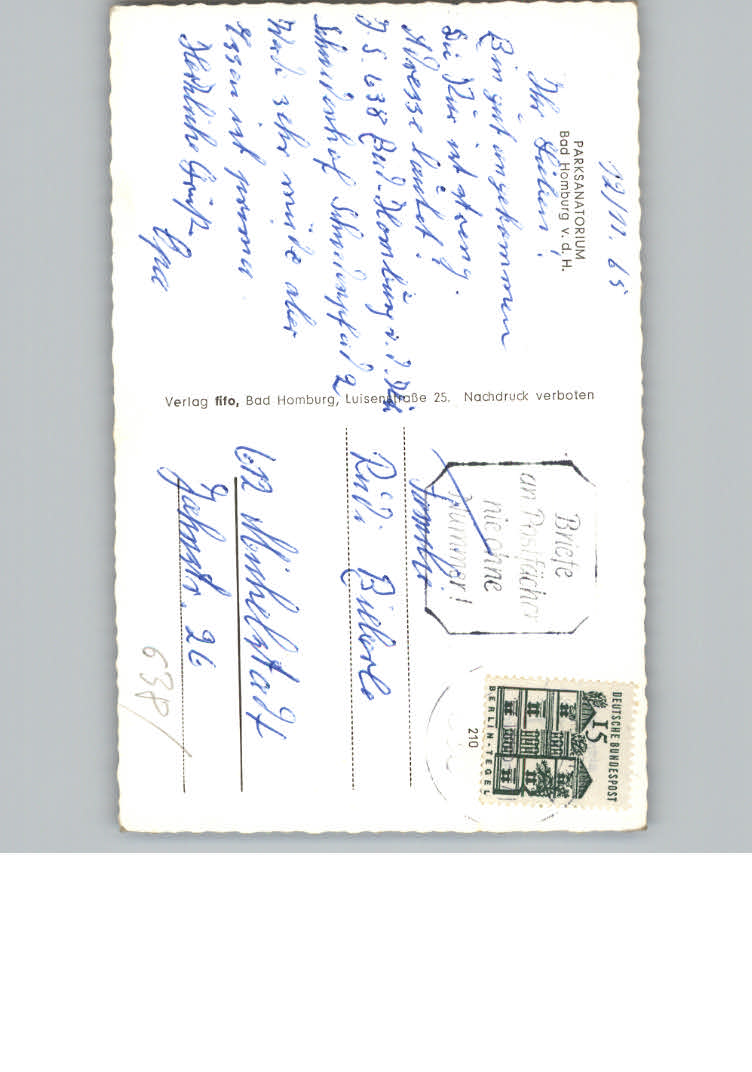 12/11. 65
PARKSANATORIUM
Bad Homburg v. d. H.
Ihr Lieben!
Bin gut angekommen
Die Kur ist streng.
Adresse lautet:
638 Bad-Homburg v. d. Höh
Schmidenhof
Werde sehr müde aber
Essen ist prima
Herzliche Grüße
Opa
Verlag fifo, Bad Homburg, Luisenstraße 25. Nachdruck verboten
Briefe
an Postfächer
nie ohne
Nummer!
DEUTSCHE BUNDESPOST
15
BERLIN-TEGEL
210
Familie
Rudi Bieberle
612 Michelstadt
Jahnstr. 26
638/